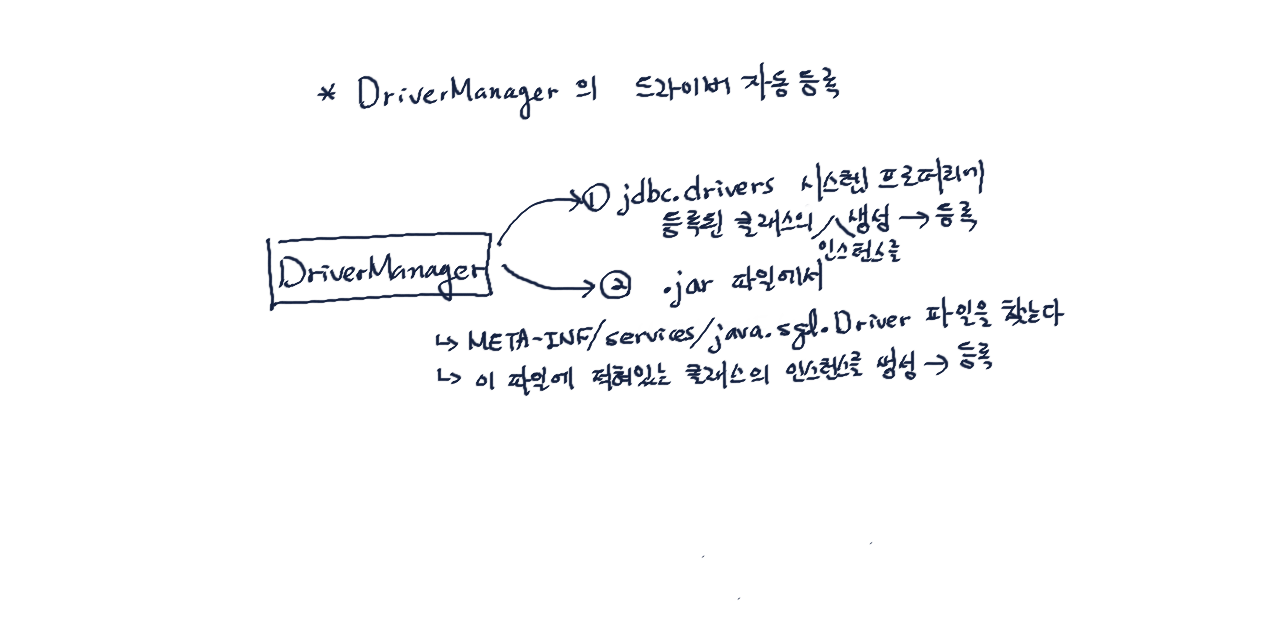 * DriverManager의 드라이버 자동 등록
① jdbc.drivers 시스템 프로퍼티에
등록된 클래스의 인스턴스를 생성 → 등록
DriverManager
② .jar 파일에서
↳ META-INF/services/java.sql.Driver 파일을 찾는다
↳ 이 파일에 적혀있는 클래스의 인스턴스를 생성 → 등록